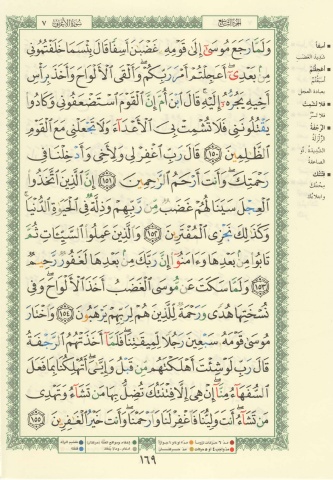 الجزء التاسع
سورة الأعراف
٧
وَلَمَّا رَجَعَ مُوسَىٰٓ إِلَىٰ قَوْمِهِۦ غَضْبَٰنَ أَسِفًا قَالَ بِئْسَمَا خَلَفْتُمُونِى
مِنۢ بَعْدِىٓ أَعَجِلْتُمْ أَمْرَ رَبِّكُمْ وَأَلْقَى ٱلْأَلْوَاحَ وَأَخَذَ بِرَأْسِ
أَخِيهِ يَجُرُّهُۥٓ إِلَيْهِ قَالَ ٱبْنَ أُمَّ إِنَّ ٱلْقَوْمَ ٱسْتَضْعَفُونِى وَكَادُوا۟
يَقْتُلُونَنِى فَلَا تُشْمِتْ بِىَ ٱلْأَعْدَآءَ وَلَا تَجْعَلْنِى مَعَ ٱلْقَوْمِ
ٱلظَّٰلِمِينَ ١٥٠ قَالَ رَبِّ ٱغْفِرْ لِى وَلِأَخِى وَأَدْخِلْنَا فِى
رَحْمَتِكَ وَأَنتَ أَرْحَمُ ٱلرَّٰحِمِينَ ١٥١ إِنَّ ٱلَّذِينَ ٱتَّخَذُوا۟
ٱلْعِجْلَ سَيَنَالُهُمْ غَضَبٌ مِّن رَّبِّهِمْ وَذِلَّةٌ فِى ٱلْحَيَوٰةِ ٱلدُّنْيَا
وَكَذَٰلِكَ نَجْزِى ٱلْمُفْتَرِينَ ١٥٢ وَٱلَّذِينَ عَمِلُوا۟ ٱلسَّيِّـَٔاتِ ثُمَّ
تَابُوا۟ مِنۢ بَعْدِهَا وَءَامَنُوٓا۟ إِنَّ رَبَّكَ مِنۢ بَعْدِهَا لَغَفُورٌ رَّحِيمٌ
١٥٣ وَلَمَّا سَكَتَ عَن مُّوسَى ٱلْغَضَبُ أَخَذَ ٱلْأَلْوَاحَ وَفِى
نُسْخَتِهَا هُدًى وَرَحْمَةٌ لِّلَّذِينَ هُمْ لِرَبِّهِمْ يَرْهَبُونَ ١٥٤ وَٱخْتَارَ
مُوسَىٰ قَوْمَهُۥ سَبْعِينَ رَجُلًا لِّمِيقَٰتِنَا فَلَمَّآ أَخَذَتْهُمُ ٱلرَّجْفَةُ
قَالَ رَبِّ لَوْ شِئْتَ أَهْلَكْتَهُم مِّن قَبْلُ وَإِيَّٰىَ أَتُهْلِكُنَا بِمَا فَعَلَ
ٱلسُّفَهَآءُ مِنَّآ إِنْ هِىَ إِلَّا فِتْنَتُكَ تُضِلُّ بِهَا مَن تَشَآءُ وَتَهْدِى
مَن تَشَآءُ أَنتَ وَلِيُّنَا فَٱغْفِرْ لَنَا وَٱرْحَمْنَا وَأَنتَ خَيْرُ ٱلْغَٰفِرِينَ ١٥٥
أسفاً
شديد الغضب
أعجلتم
فلا تشمت
فلا تسر
الرجفة
الزلزلة
الصاعقة
فتنتك
١٦٩